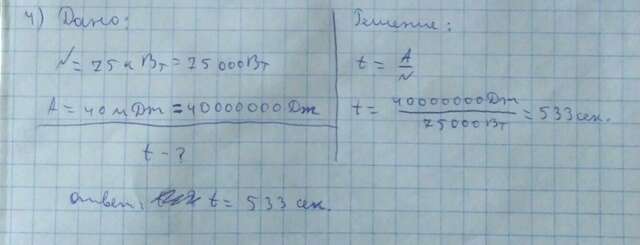 4) Дано:
N = 75 кВт = 75000Вт
A = 40 мДж = 40000000 Дж
t - ?
Решение:
t = A/N
t = 40000000Дж/75000Вт = 533 сек.
ответ: t = 533 сек.